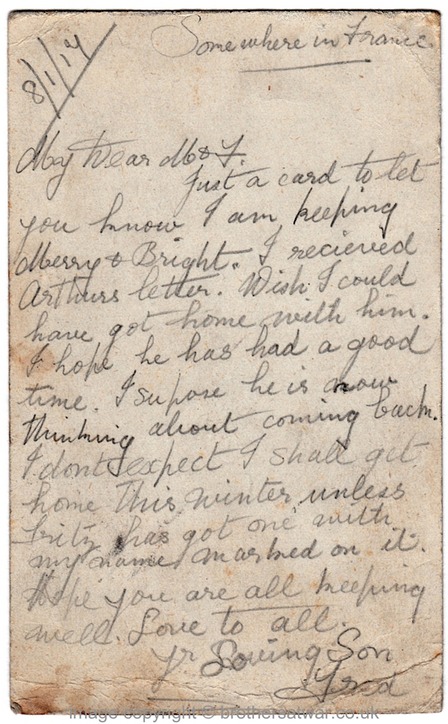 Somewhere in France.
8/1/17
My Dear M & F.
Just a card to let
you know I am keeping
Merry & Bright. I recieved
Arthurs letter. Wish I could
have got home with him.
I hope he has had a good
time. I supose he is now
thinking about coming back.
I dont expect I shall get
home this winter unless
Fritz has got one with
my name marked on it.
Hope you are all keeping
well. Love to all.
Yr Loving Son
Fred
image copyright © brothersatwar.co.uk